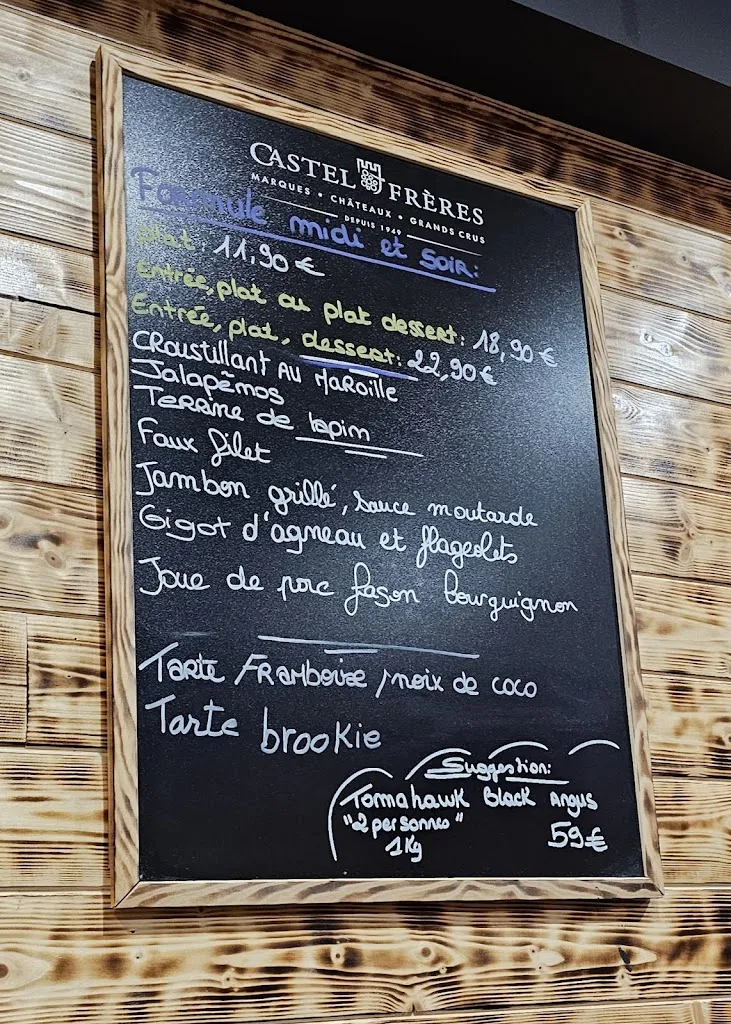 CASTEL FRÈRES
MARQUES • CHÂTEAUX • GRANDS CRUS
DEPUIS 1949
Formule midi et soir:
plat: 11,90 €
Entrée, plat ou plat dessert: 18,90 €
Entrée, plat, dessert: 22,90 €
CRoustillant AU MaRoille
Jalapẽnos
Terrine de lapin
Faux filet
Jambon grillé, sauce moutarde
Gigot d'agneau et flageolets
Joue de porc façon bourguignon
Tarte FRamboise / noix de coco
Tarte brookie
Suggestion:
Tomahawk Black Angus
"2 personnes"
59€
1Kg